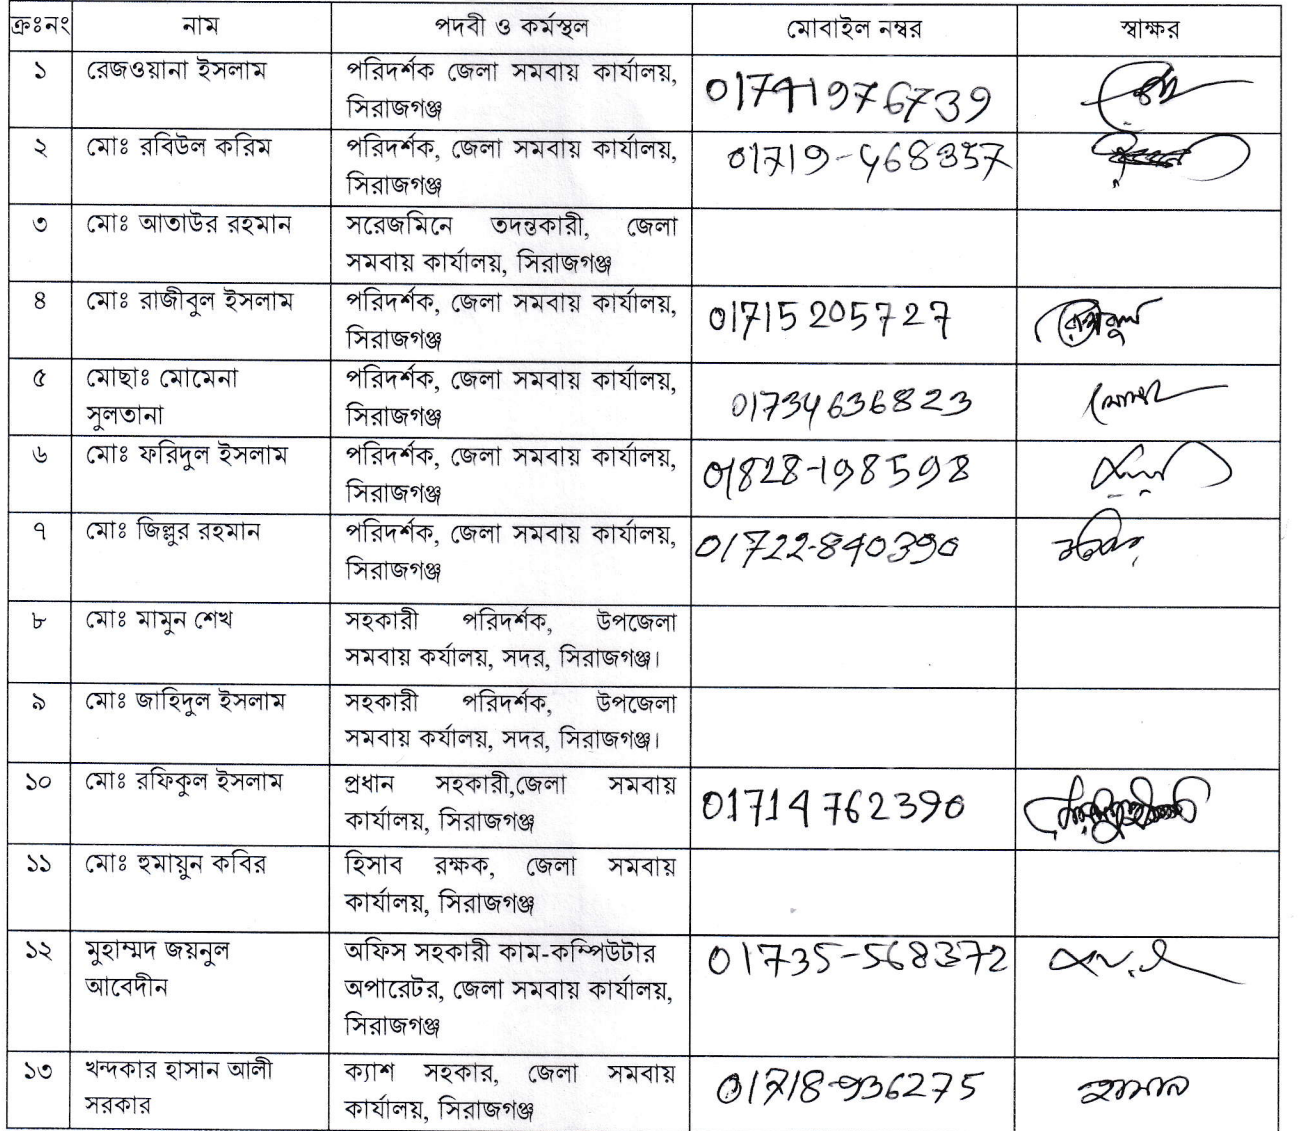 ক্রঃনং নাম পদবী ও কর্মস্থল মোবাইল নম্বর স্বাক্ষর
১ রেজওয়ানা ইসলাম পরিদর্শক জেলা সমবায় কার্যালয়,
সিরাজগঞ্জ 01741976739
২ মোঃ রবিউল করিম পরিদর্শক, জেলা সমবায় কার্যালয়,
সিরাজগঞ্জ 01719-468357
৩ মোঃ আতাউর রহমান সরেজমিনে তদন্তকারী, জেলা
সমবায় কার্যালয়, সিরাজগঞ্জ
৪ মোঃ রাজীবুল ইসলাম পরিদর্শক, জেলা সমবায় কার্যালয়,
সিরাজগঞ্জ 01715205727
৫ মোছাঃ মোমেনা পরিদর্শক, জেলা সমবায় কার্যালয়,
সুলতানা সিরাজগঞ্জ 01734636823
৬ মোঃ ফরিদুল ইসলাম পরিদর্শক, জেলা সমবায় কার্যালয়,
সিরাজগঞ্জ 01828-198598
৭ মোঃ জিল্লুর রহমান পরিদর্শক, জেলা সমবায় কার্যালয়,
সিরাজগঞ্জ 01722-840390
৮ মোঃ মামুন শেখ সহকারী পরিদর্শক, উপজেলা
সমবায় কর্যালয়, সদর, সিরাজগঞ্জ।
৯ মোঃ জাহিদুল ইসলাম সহকারী পরিদর্শক, উপজেলা
সমবায় কর্যালয়, সদর, সিরাজগঞ্জ।
১০ মোঃ রফিকুল ইসলাম প্রধান সহকারী,জেলা সমবায়
কার্যালয়, সিরাজগঞ্জ 01714762390
১১ মোঃ হুমায়ুন কবির হিসাব রক্ষক, জেলা সমবায়
কার্যালয়, সিরাজগঞ্জ
১২ মুহাম্মদ জয়নুল অফিস সহকারী কাম-কম্পিউটার 01735-568372
আবেদীন অপারেটর, জেলা সমবায় কার্যালয়,
সিরাজগঞ্জ
১৩ খন্দকার হাসান আলী ক্যাশ সহকার, জেলা সমবায় 01718-936275
সরকার কার্যালয়, সিরাজগঞ্জ হাসান